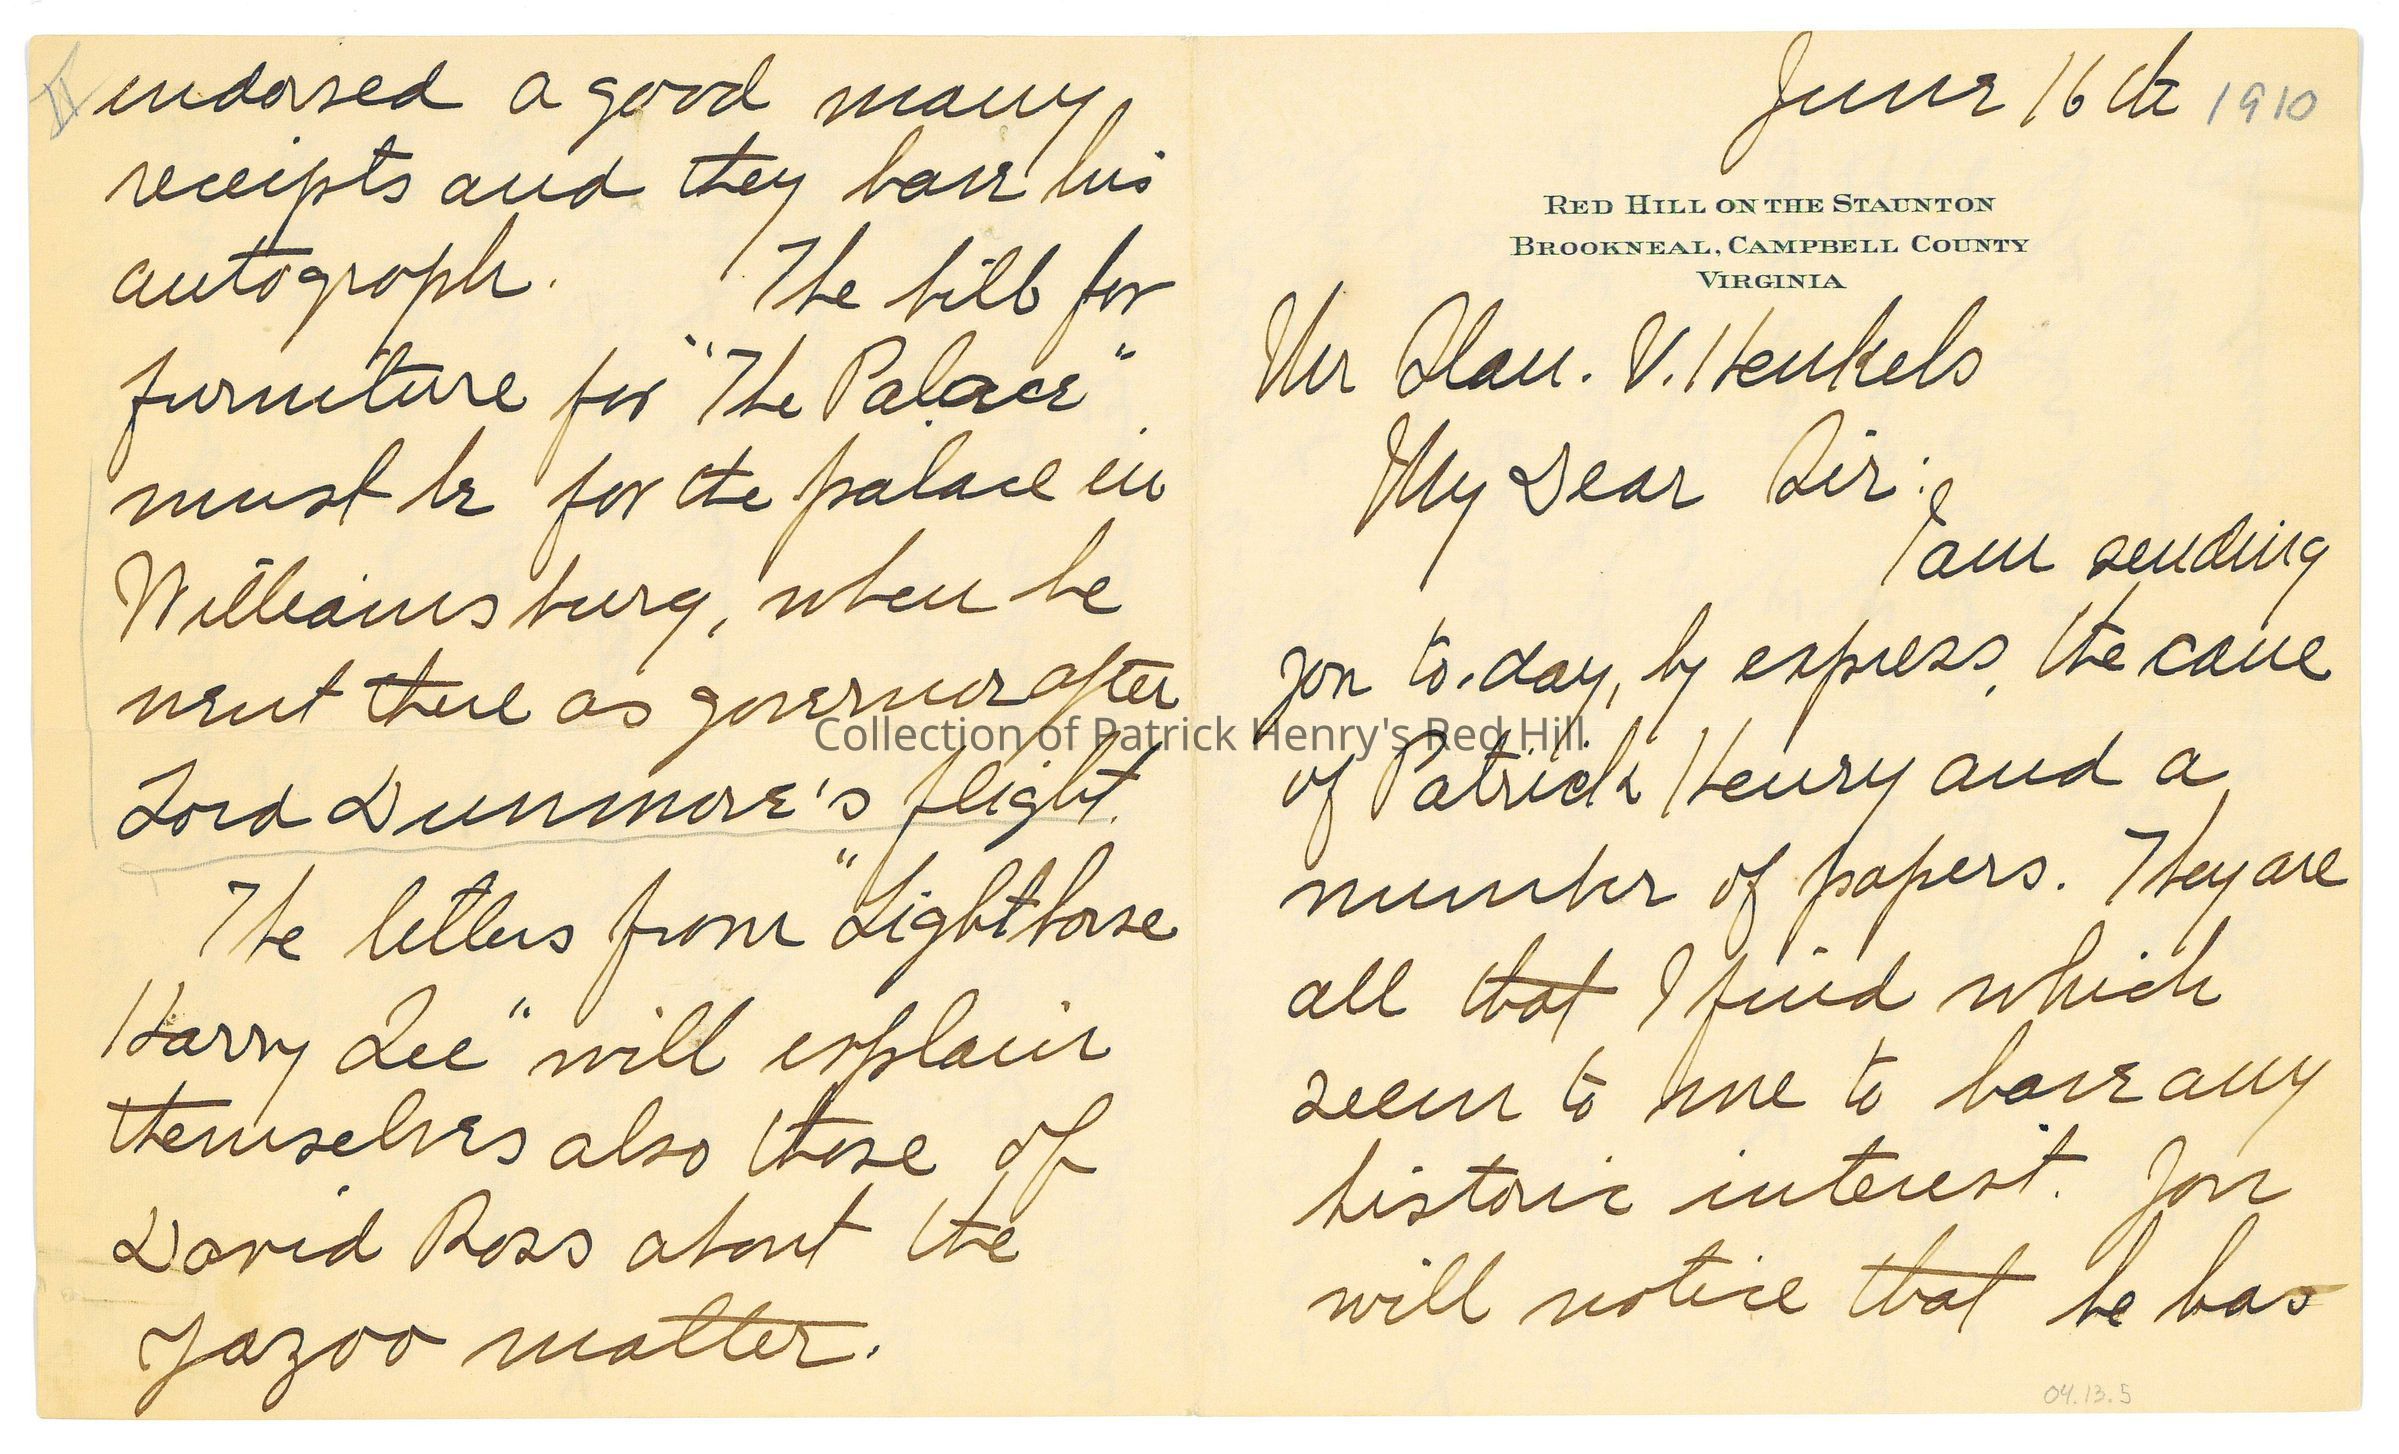 June 16th 1910
RED HILL ON THE STAUNTON
BROOKNEAL, CAMPBELL COUNTY
VIRGINIA
Mr Stan. V. Henkels
My Dear Sir:
I am sending
you to-day, by express, the cane
of Patrick Henry and a
number of papers. They are
all that I find which
seem to me to have any
historic interest. You
will notice that he has
04.13.5
II
endorsed a good many
receipts and they have his
autograph. The bill for
furniture for "The Palace"
must be for the palace in
Williamsburg, when he
went there as governor after
Lord Dunmore's flight.
The letters from "Lighthorse
Harry Lee" will explain
themselves also those of
David Ross about the
Yazoo matter.
Collection of Patrick Henry's Red Hill